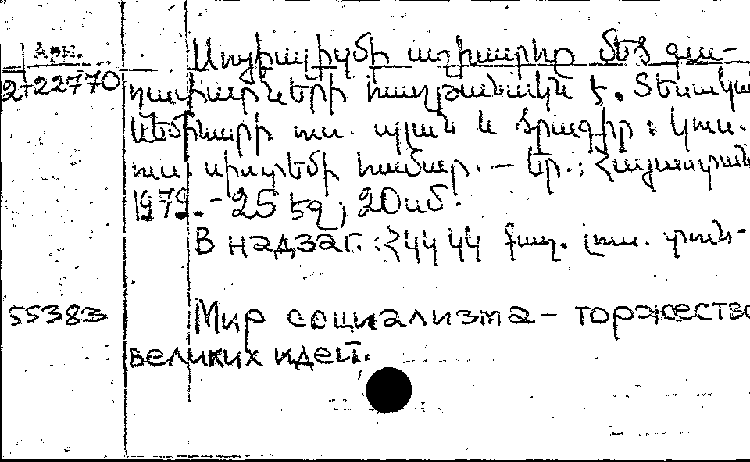 Арм.
2-22770
Սոցիալիզմի աշխարհը մեծ գա-
ղափարների հաղթանակն է. Տեսակա
սեմինարի ուս. պլան և ծրագիր: Կուս.
ուս. սիստեմի համար. — Եր.: Հայաստան
1979. - 25 էջ; 20սմ.
В надзаг.: ՀԿԿ ԿԿ քաղ. լուս. տուն-
55383
Мир социализма – торжество
великих идей.